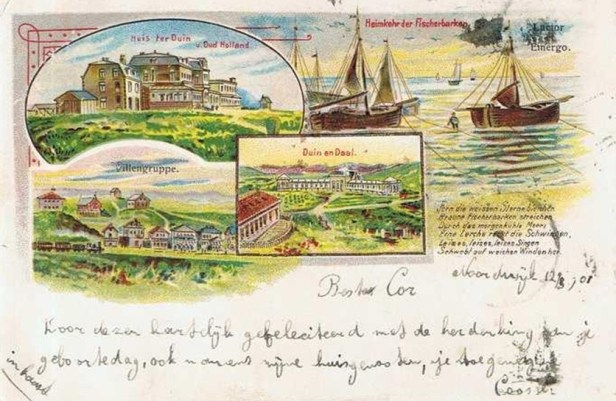 Huis ter Duin
v. Oud Holland.
Heimkehr der Fischerbarken.
Luctor
et
Emergo.
Villengruppe.
Duin en Daal.
Fern die weissen Sterne
Braune Fischerbarken streichen
Durch das morgenkühle Meer;
Eine Lerche die Schwingen,
Leises, leises, leises Singen
Schwebt auf weichen Winden her.
Noordwijk 12/8 01
Beste Cor
Voor dezen hartelijk gefeliciteerd met de herdenking van je
geboortedag, ook namens mijne huisgenooten, je toegenegen
in haast